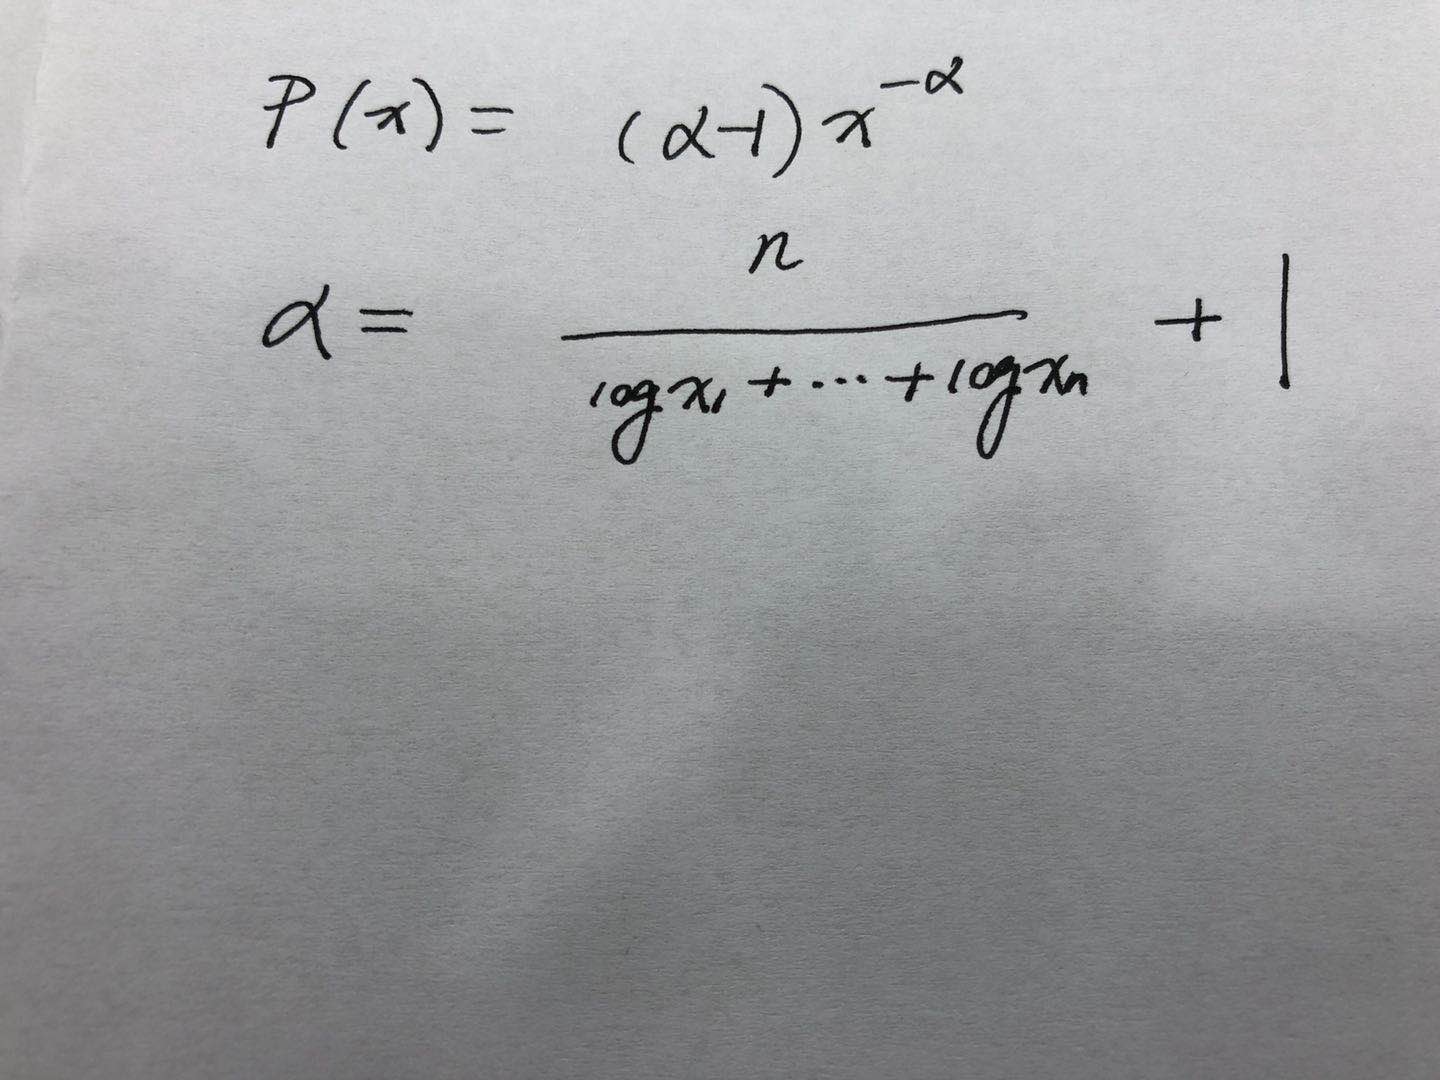 P(x) = (α-1) x^{-α}
α = \frac{n}{log x_1 + ⋯ + log x_n} + 1